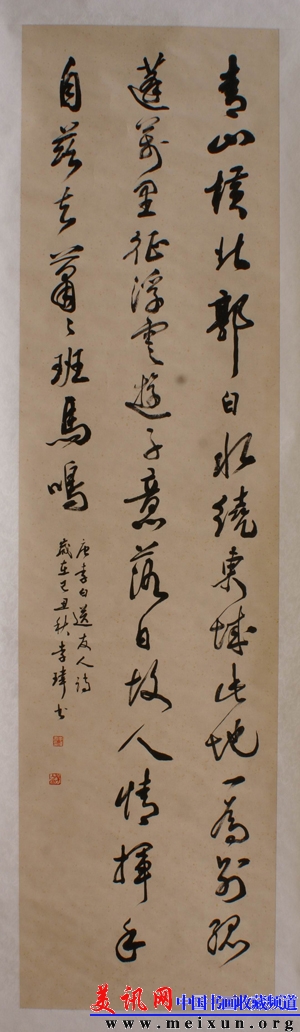 青山橫北郭白水繞東城此地一爲別孤
蓬萬里征浮雲遊子意落日故人情揮手
自茲去蕭〻班馬鳴
唐李白送友人詩
歲在己丑秋李瑋书
美讯网 中国书画收藏频道
www.meixun.org